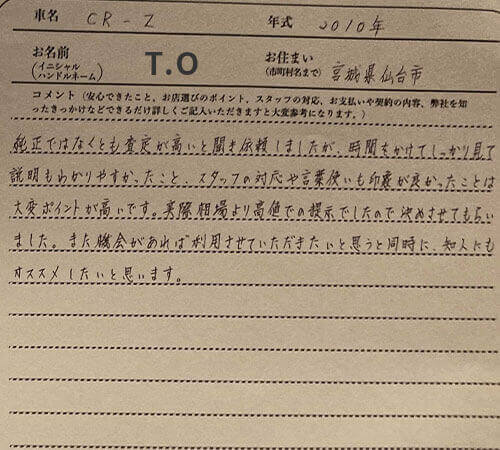 車名 CR-Z 年式 2010年
お名前 (イニシャル ハンドルネーム) T.O お住まい (市町村名まで) 宮城県仙台市
コメント（安心できたこと、お店選びのポイント、スタッフの対応、お支払いや契約の内容、弊社を知
ったきっかけなどできるだけ詳しくご記入いただきますと大変参考になります。）
純正ではなくとも査定が高いと聞き依頼しましたが、時間をかけてしっかり見て
説明もわかりやすかったこと、スタッフの対応や言葉使いも印象が良かったことは
大変ポイントが高いです。実際相場より高値での提示でしたので決めさせてもらい
ました。また機会があれば利用させていただきたいと思うと同時に、知人にも
オススメしたいと思います。